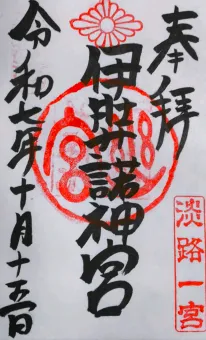 奉拝
伊弉諾神宮
令和七年十月十五日
淡路一宮